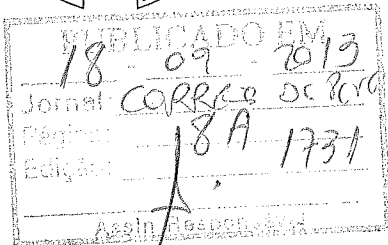 PUBLICADO EM
18 - 09 - 2013
Jornal: CORREIO DO POVO
Página: 18A
Edição: 1731
Assin. Responsável